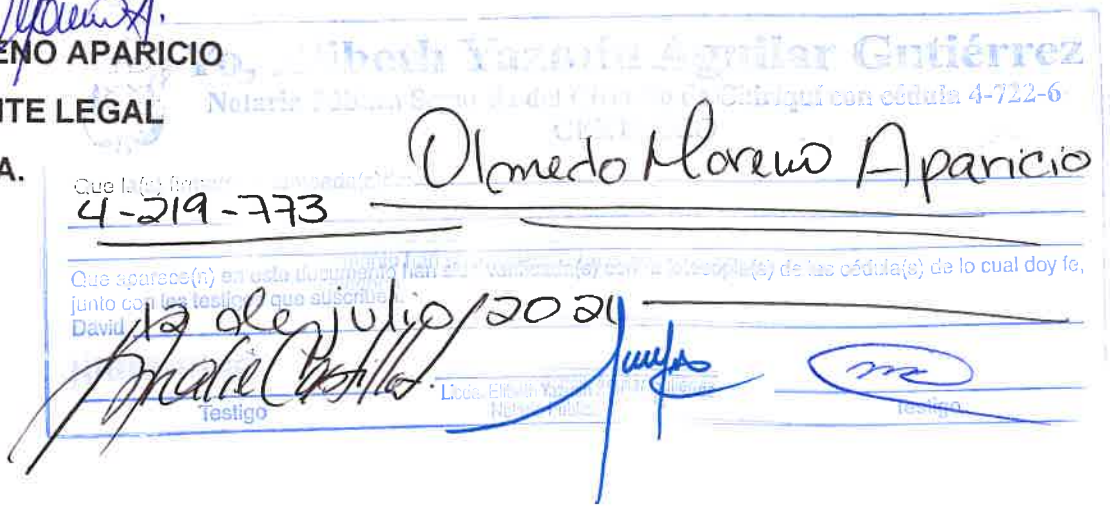 ENO APARICIO
Yo, Elibeth Yazmín Aguilar Gutiérrez
Notaria del Circuito de Chiriquí con cédula 4-722-6
NTE LEGAL
A.
Olmedo Moreno Aparicio
Que la(s) firma
4-219-773
Que aparece(n) en este documento han verificada(s) con la fotocopia(s) de las cédula(s) de lo cual doy fe,
junto con los testigos que suscriben.
David 12 de julio/2021
Licda. Elibeth Yazmín Aguilar Gutiérrez
Testigo
Notaria Pública
Testigo